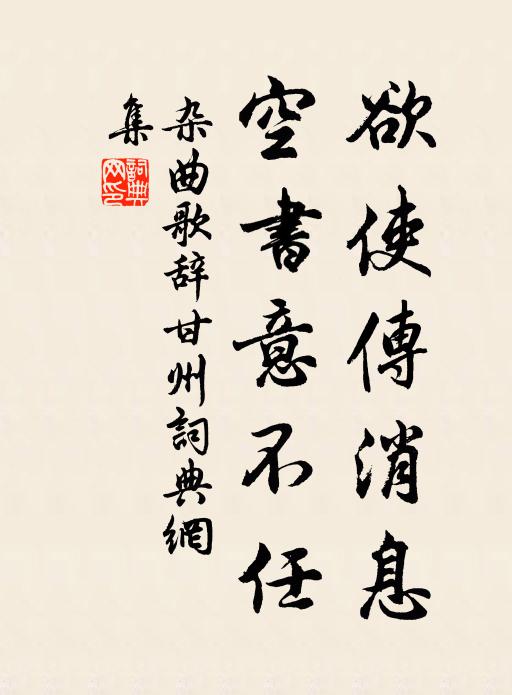 欲使傳消息
空書意不任
杂曲歌辞甘州詞典網
集
詞典网印